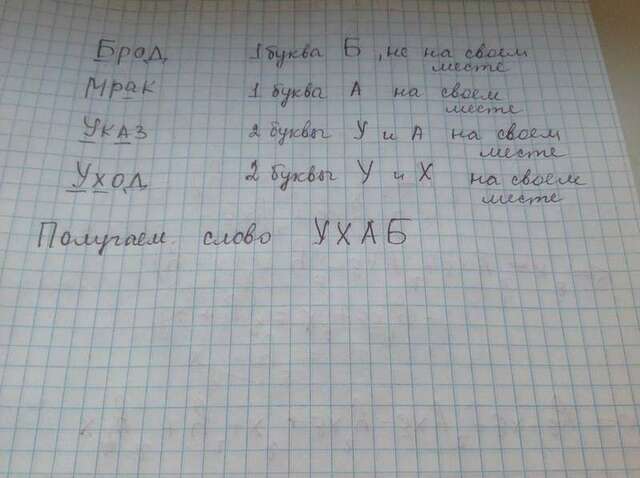 Брод 1 буква Б, не на своем
месте
Мрак 1 буква А на своем
месте
Указ 2 буквы У и А на своем
месте
Уход 2 буквы У и Х на своем
месте
Получаем слово УХАБ